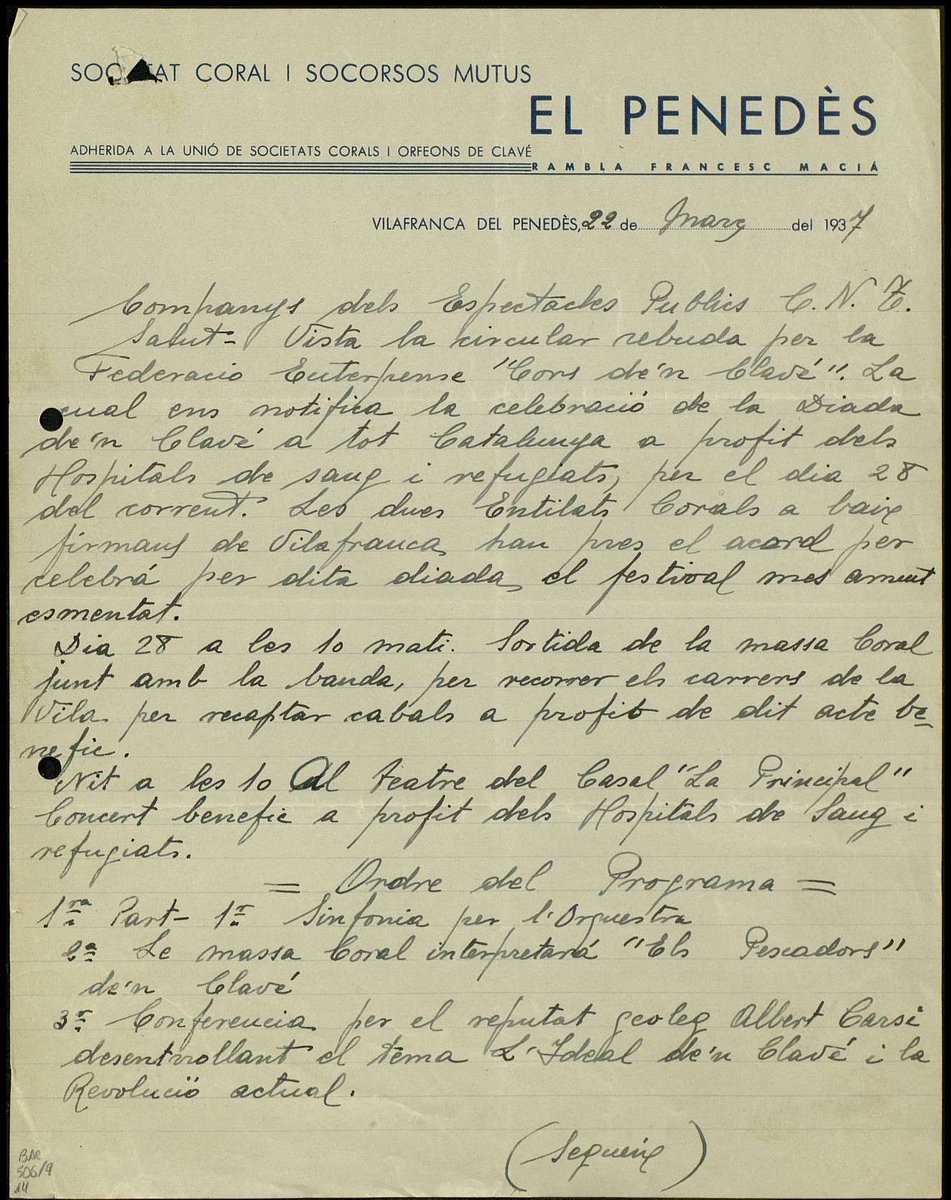 SOC AT CORAL I SOCORSOS MUTUS
EL PENEDÈS
ADHERIDA A LA UNIÓ DE SOCIETATS CORALS I ORFEONS DE CLAVÉ
RAMBLA FRANCESC MACIÁ
VILAFRANCA DEL PENEDÈS, 22 de Març del 1937
Companys dels Espectacles Publics C. N. T.
Salut- Vista la circular rebuda per la
Federacio Euterpense "Cors de'n Clavé". La
cual ens notifica la celebració de la Diada
de'n Clavé a tot Catalunya a profit dels
Hospitals de sang i refugiats, per el dia 28
del corrent. Les dues Entitats Corals a baix
firmans de Vilafranca, han pres el acord per
celebrá per dita diada, el festival mes amunt
esmentat.
Dia 28 a les 10 mati. Sortida de la massa Coral
junt amb la banda, per recorrer els carrers de la
Vila per recaptar cabals a profit de dit acte be-
nefic.
Nit a les 10 Al teatre del Casal "La Principal"
Concert benefic a profit dels Hospitals de Sang i
refugiats.
= Ordre del Programa =
1ra Part- 1r Sinfonia per l'Orquestra
2a Le massa Coral interpretará "Els Pescadors"
de'n Clavé
3r Conferencia per el reputat geoleg Albert Carsi
desentrollant el tema L'Ideal de'n Clavé i la
Revolució actual.
(Segueix)
BAR
506/9
14